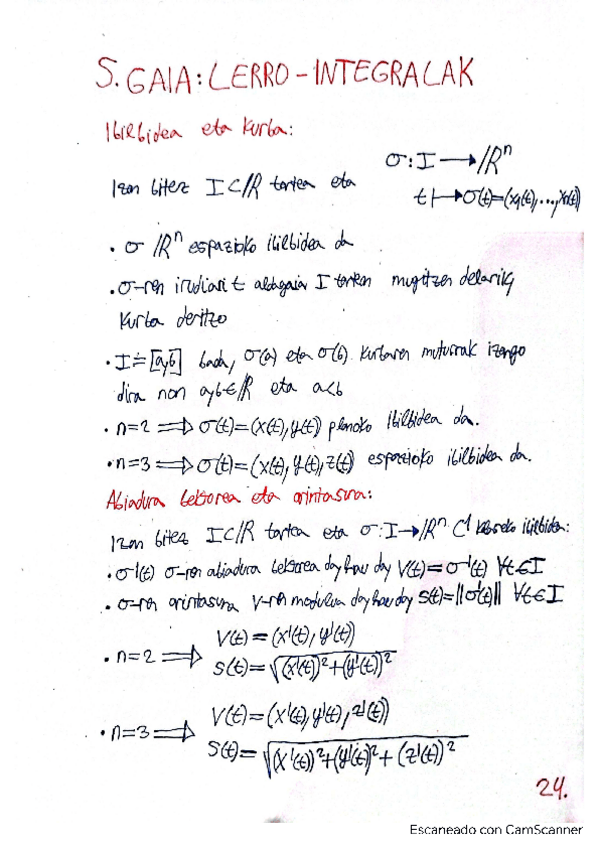 5. GAIA: LERRO-INTEGRALAK
Ibilbidea eta kurba:
σ: I → ℝⁿ
Izan bitez I ⊂ ℝ tartea eta
t ↦ σ(t)=(x₁(t),...,xₙ(t))
· σ ℝⁿ espazioko ibilbidea da
· σ-ren irudiari t aldagaia I tartean mugitzen delarik
kurba deritzo
· I = [a,b] bada, σ(a) eta σ(b) kurbaren muturrak izango
dira non a,b ∈ ℝ eta a<b
· n=2 ⟹ σ(t)=(x(t), y(t)) planoko ibilbidea da.
· n=3 ⟹ σ(t)=(x(t), y(t), z(t)) espazioko ibilbidea da.
Abiadura bektorea eta arintasuna:
Izan bitez I ⊂ ℝ tartea eta σ: I → ℝⁿ C¹ klaseko ibilbidea:
· σ'(t) σ-ren abiadura bektorea da, hau da, V(t)=σ'(t) ∀t∈I
· σ-ren arintasuna V-ren modulua da, hau da, S(t)=||σ'(t)|| ∀t∈I
V(t)=(x'(t), y'(t))
· n=2 ⟹
S(t)=√((x'(t))²+(y'(t))²)
V(t)=(x'(t), y'(t), z'(t))
· n=3 ⟹
S(t)=√((x'(t))²+(y'(t))²+(z'(t))²)
24.
Escaneado con CamScanner